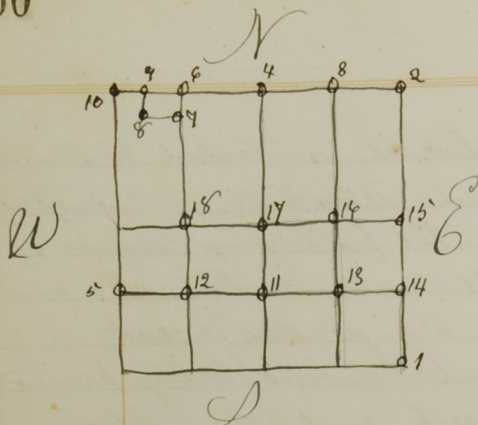 N
10 9 6 4 8 2
8 7
W 18 17 16 15 E
5 12 11 13 14
1
S